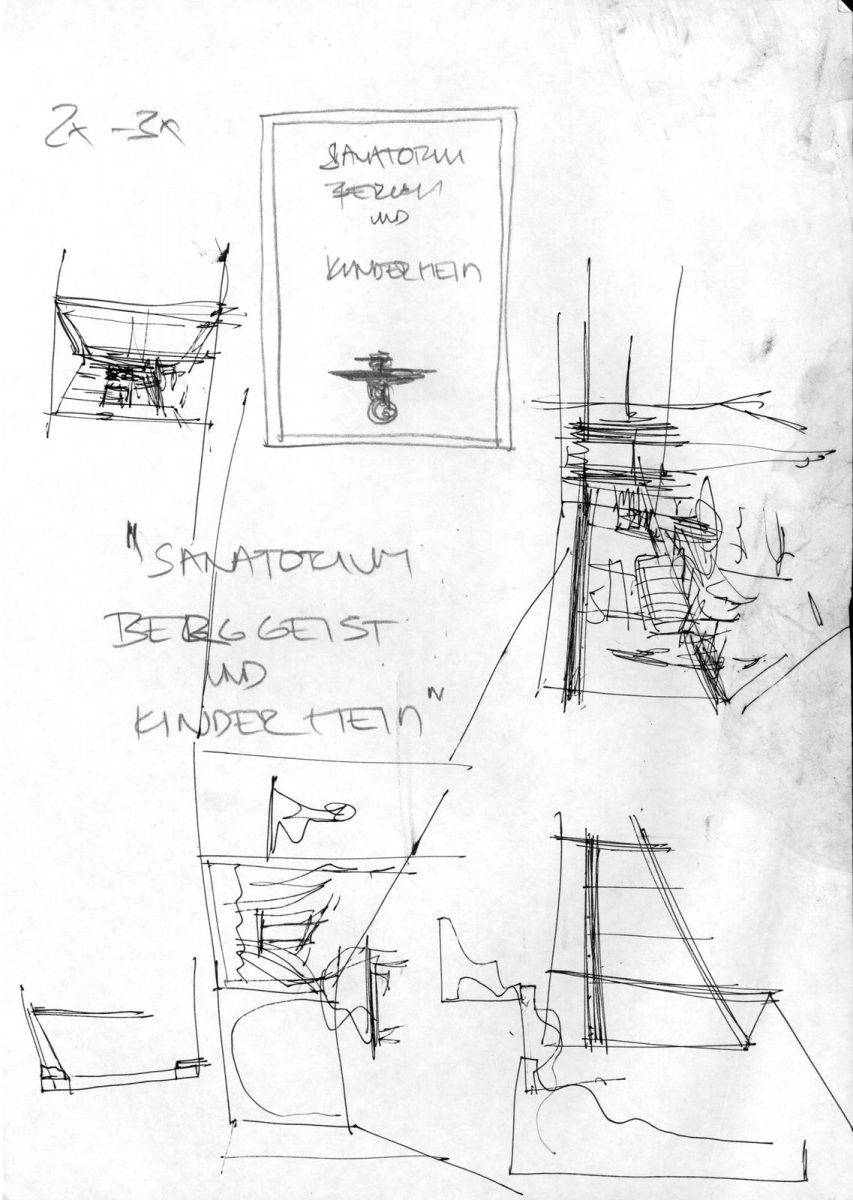 2x - 3x
SANATORIUM
UND
KINDERHEIM
"SANATORIUM
BERGGEIST
UND
KINDERHEIM"